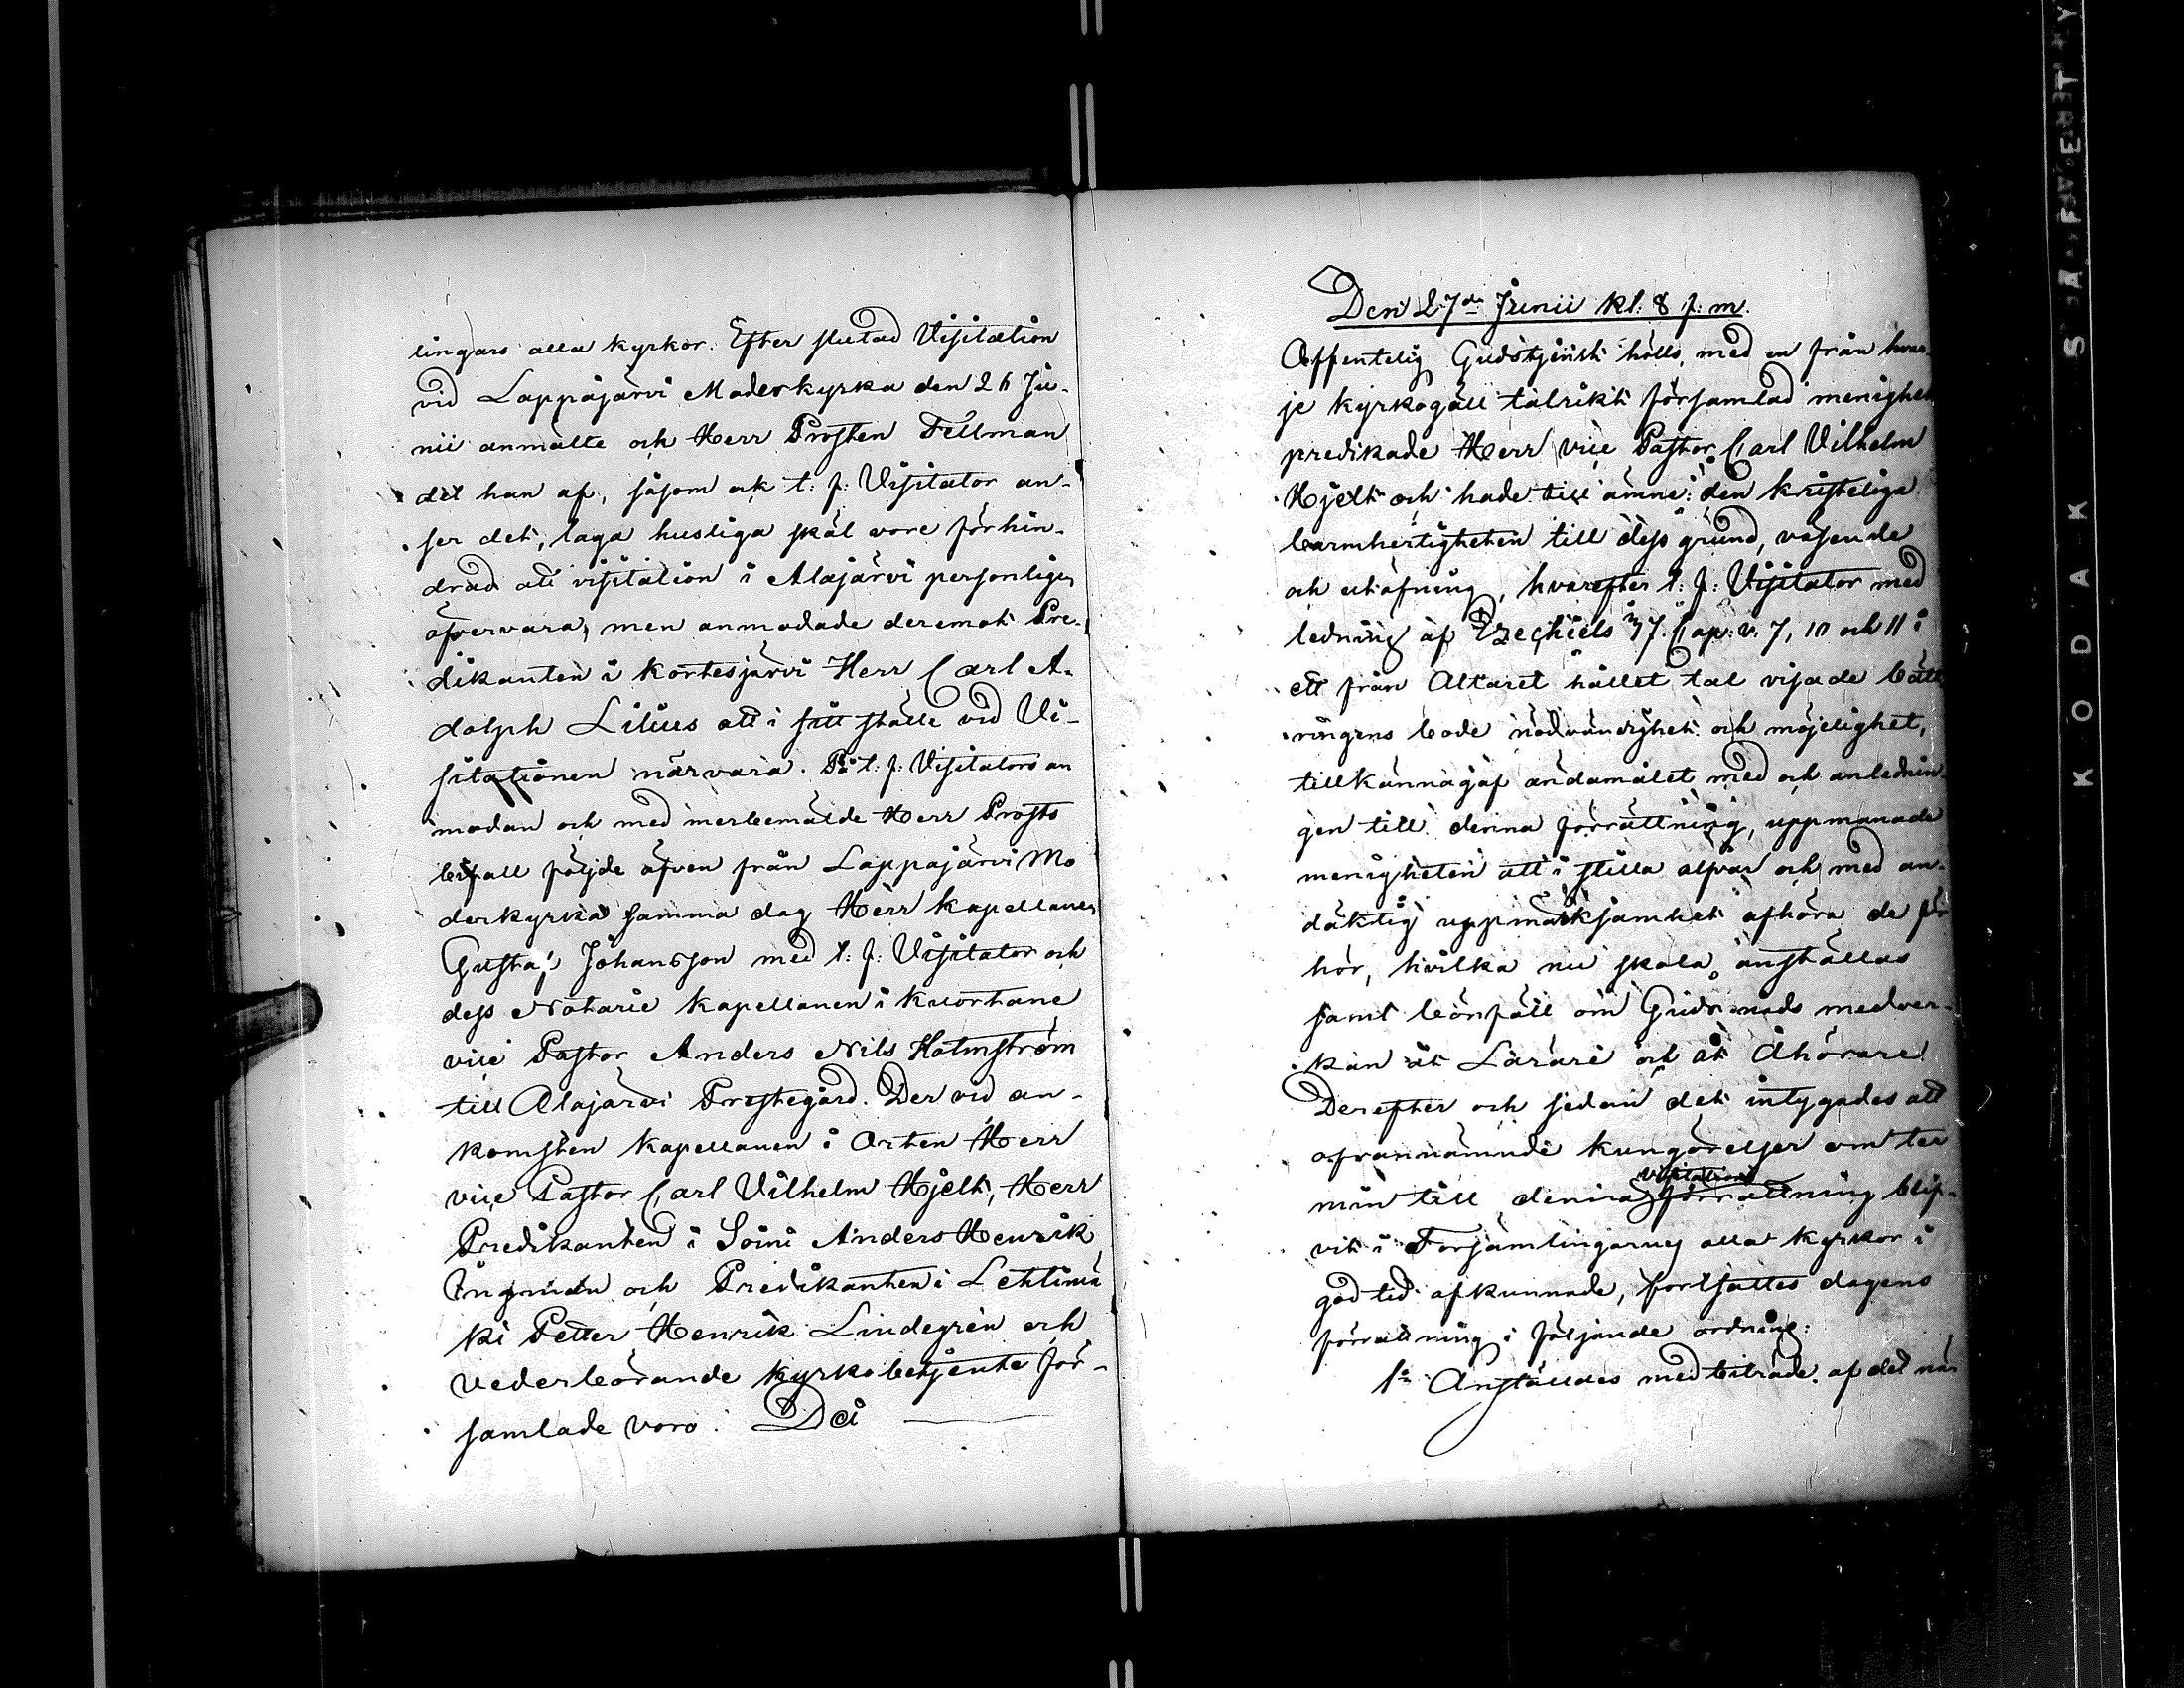 lingars alla kyrkor. Efter slutad Visitation
vid Lappajärvi Moderkyrka den 26 Ju-
nii anmälte och Herr Prosten Fellman
det han af, såsom ock t. f. Visitator an-
ser det, laga husliga skäl vore förhin-
drad att visitation i Alajärvi personligen
öfvervara, men anmodade deremot Pre-
dikanten i Kortesjärvi Herr Carl A-
dolph Lilius att i sitt ställe vid Vi-
sitationen närvara. På t. f. Visitators an
modan och med merbemälde Herr Prosts
bifall följde äfven från Lappajärvi Mo
derkyrka samma dag Herr Kapellanen
Gustaf Johansson med t. f. Visitator och
dess Notarie Kapellanen i Kuortane
vice Pastor Anders Nils Holmström
till Alajärvi Prestegård. Der vid an-
komsten Kapellanen i Orten Herr
vice Pastor Carl Vilhelm Hjelt, Herr
Predikanten i Soini Anders Henrik
Ingman och Predikanten i Lehtimä
ki Petter Henrik Lindegrén och
vederbörande kyrkobetjente för-
samlade voro. Då
Den 27de Junii kl: 8 f: m.
Offentelig Gudstjenst hölls, med en från hvar-
je kyrkogäll talrikt församlad menighet
predikade Herr vice Pastor Carl Vilhelm
Hjelt och hade till ämne: den kristeliga
barmhertigheten till dess grund, väsende
och utöfning, hvarefter t: f: Visitator med
ledning af Ezechiels 37 Cap: v. 7, 10 och 11 i
ett från Altaret hållet tal visade bätt
ringens både nödvändighet och möjelighet,
tillkännagaf ändamålet med och anlednin
gen till denna förrättning, uppmanade
menigheten att i stilla alfvar och med an-
däktig uppmärksamhet afhöra de för
hör, hvilka nu skola anställas
samt bönföll om Guds nåds medver-
kan åt Lärare och åt Åhörare.
Derefter och sedan det intygades att
ofvannämnde kungörelser om ter
visitations
min till denna förrättning blif-
vit i Församlingarnes alla kyrkor i
god tid afkunnade, fortsattes dagens
förrättning i följande ordning:
1o Anställdes med biträde af det när
S A F E T Y
K O D A K